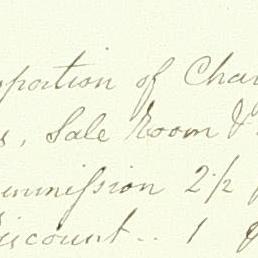 portion of Cha
s, Sale Room &
ommission 2 1/2
Discount .. 1